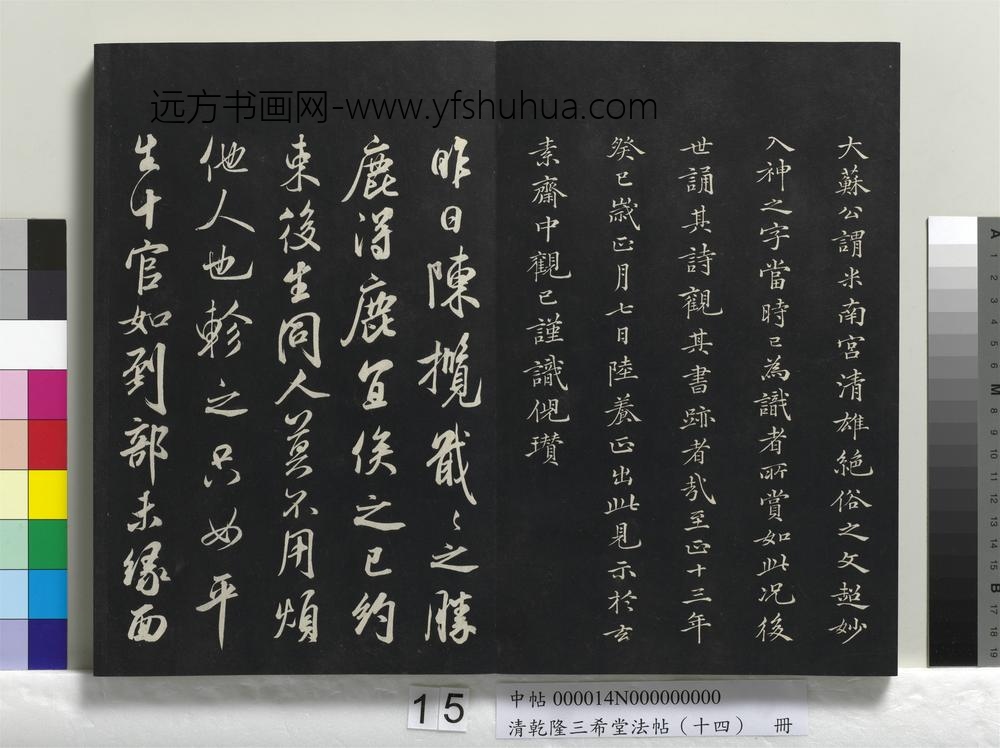 远方书画网-www.yfshuhua.com
大蘇公謂米南宮清雄絶俗之文超妙
入神之字當時已為識者所賞如此況後
世誦其詩觀其書跡者哉至正十三年
癸巳歲正月七日陸養正出此見示於玄
素齋中觀已謹識倪瓚
昨日陳攬戢戢之勝
鹿得鹿宜俟之已約
束後生同人莫不用煩
他人也軫之只如平
生十官如到部未緣面
15
中帖 000014N000000000
清乾隆三希堂法帖（十四） 冊
A 1 2 3 4 5 6 M 8 9 10 11 12 13 14 15 B 17 18 19